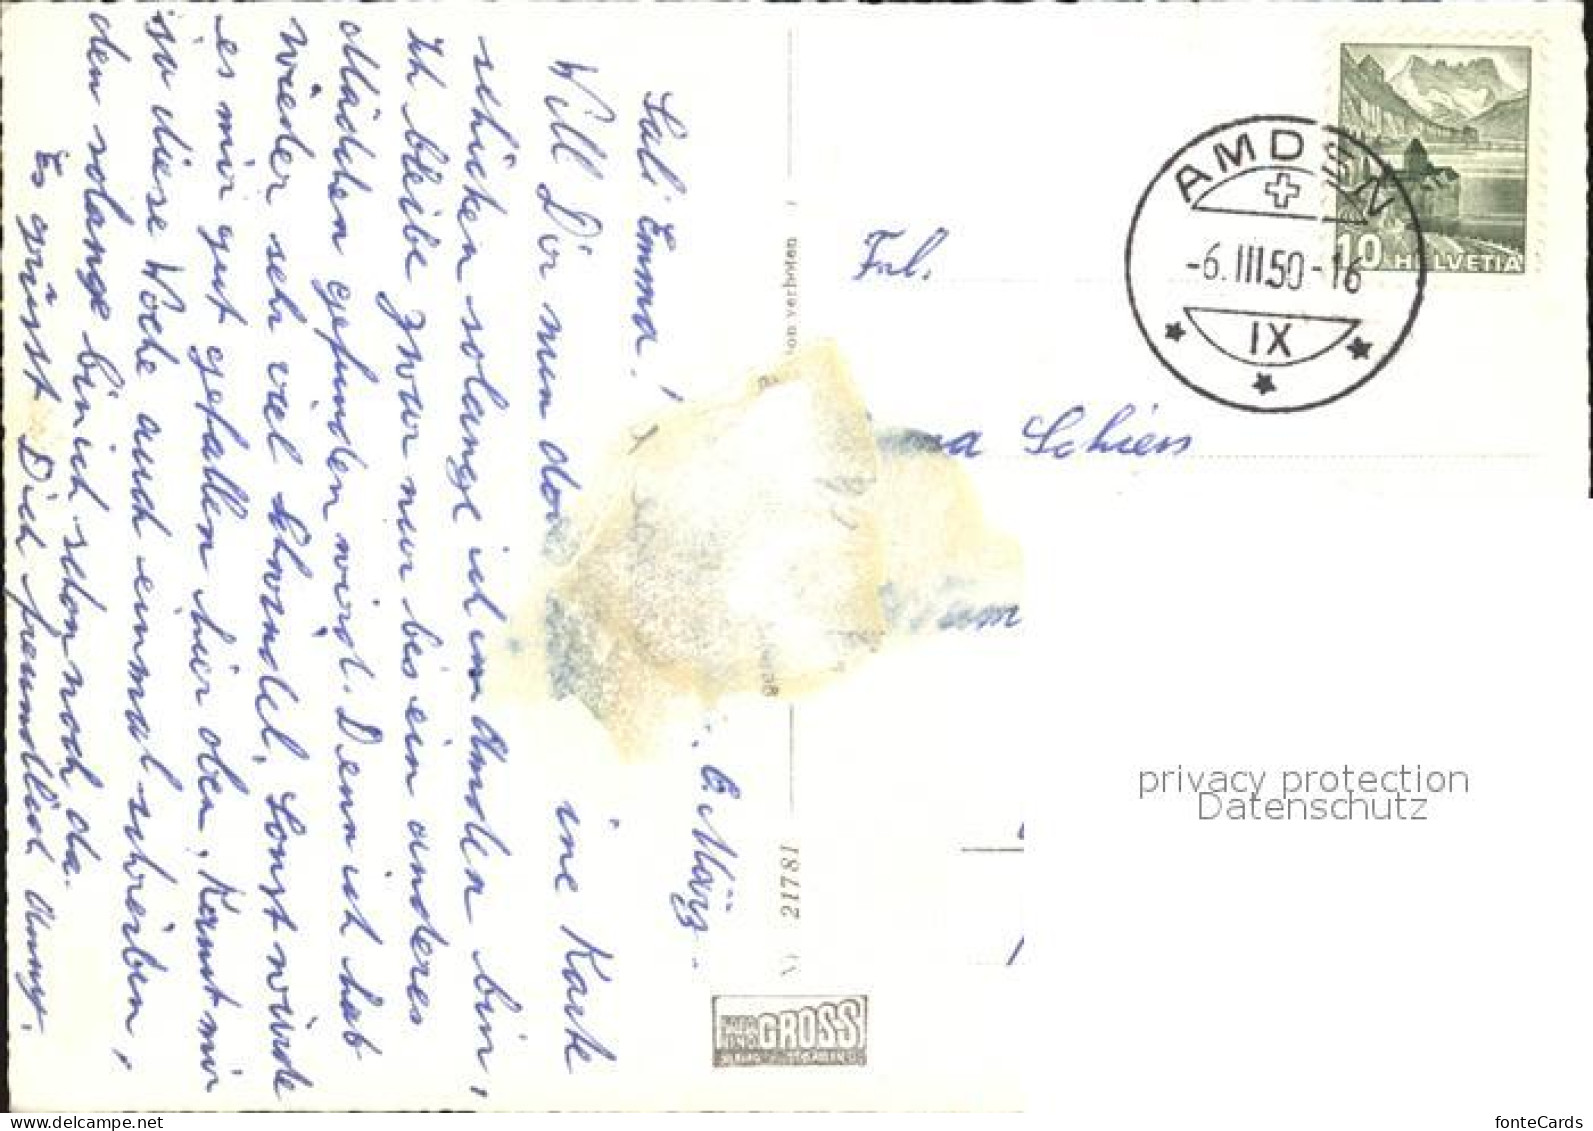 Sali Emma!
6. März.
Will Dir nun doch ine Karte
schicken solange ich im Amden bin,
Ich bleibe zwar nur bis ein anderes
Mädchen gefunden wird. Denn ich hab
wieder sehr viel Schwindel, Sonst würde
es mir gut gefallen hier oben, Kannst mir
ja diese Woche auch einmal schreiben,
den solange bin ich schon noch da.
Es grüsst Dich freundlich Anny.
ion verboten
21781
GROSS
AMDEN
-6.III.50-16
IX
10 HELVETIA
Frl.
ma Schiess
privacy protection
Datenschutz
fonteCards